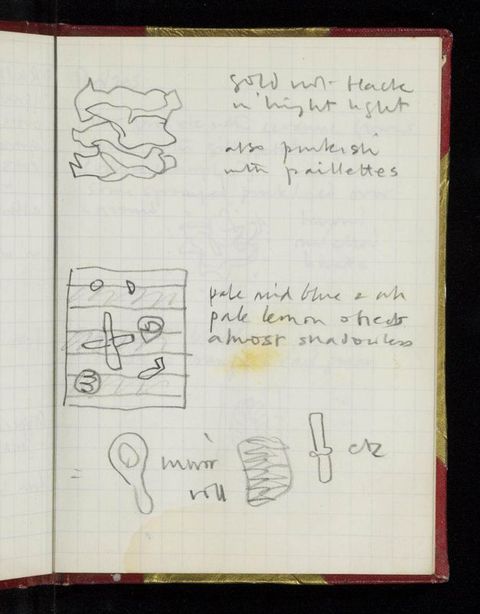 gold not black
in bright light
also pinkish
with paillettes
pale mid blue &
pale lemon objects
almost shadowless
mirror
roll
etc